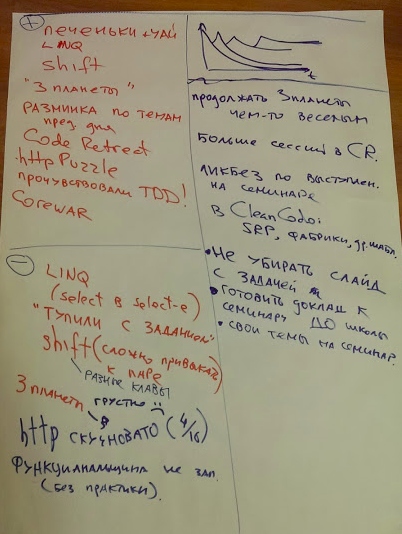 +
печеньки + чай
LINQ
shift
"3 планеты"
разминка по темам
пред. дня
Code Retreat
http Puzzle
прочувствовали TDD!
CoreWar
−
LINQ
(select в select-е)
"тупили с заданием"
shift (сложно привыкать
к паре)
разные клавы
3 планеты грустно
http скучновато (4/16)
функцинальщина не зап.
(без практики).
t
продолжать 3 планеты
чем-то веселым
больше сессий в CR.
ликбез по выступлен.
на семинаре
в CleanCode:
SRP, фабрики, др. шабл.
• Не убирать слайд
с задачей
• готовить доклад к
семинару до школы
• свои темы на семинар.